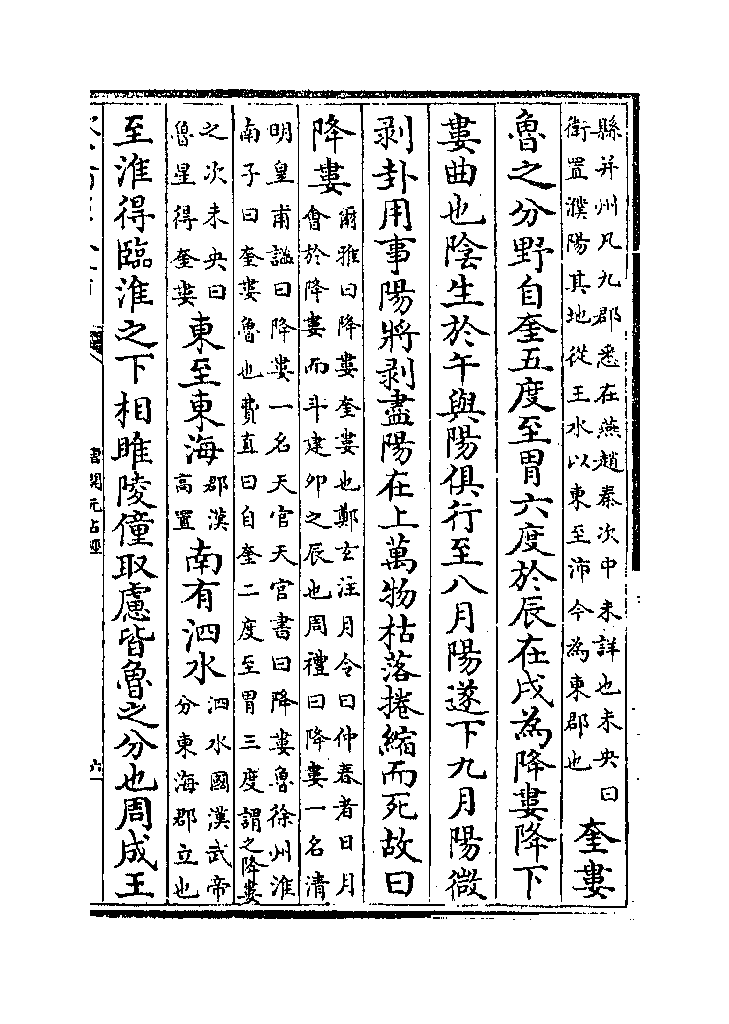 縣并州凡九郡悉在燕趙秦次中未詳也未央曰
衛置濮陽其地從王水以東至沛今為東郡也
奎婁
魯之分野自奎五度至胃六度於辰在戌為降婁降下
婁曲也陰生於午與陽俱行至八月陽遂下九月陽微
剥卦用事陽將剥盡陽在上萬物枯落捲縮而死故曰
降婁
爾雅曰降婁奎婁也鄭玄注月令曰仲春者日月
會於降婁而斗建卯之辰也周禮曰降婁一名清
明皇甫謐曰降婁一名天官天官書曰降婁魯徐州淮
南子曰奎婁魯也費直曰自奎二度至胃三度謂之降婁
之次未央曰
魯星得奎婁
東至東海
郡漢
高置
南有泗水
泗水國漢武帝
分東海郡立也
至淮得臨淮之下相睢陵僮取慮皆魯之分也周成王
唐開元占經
六